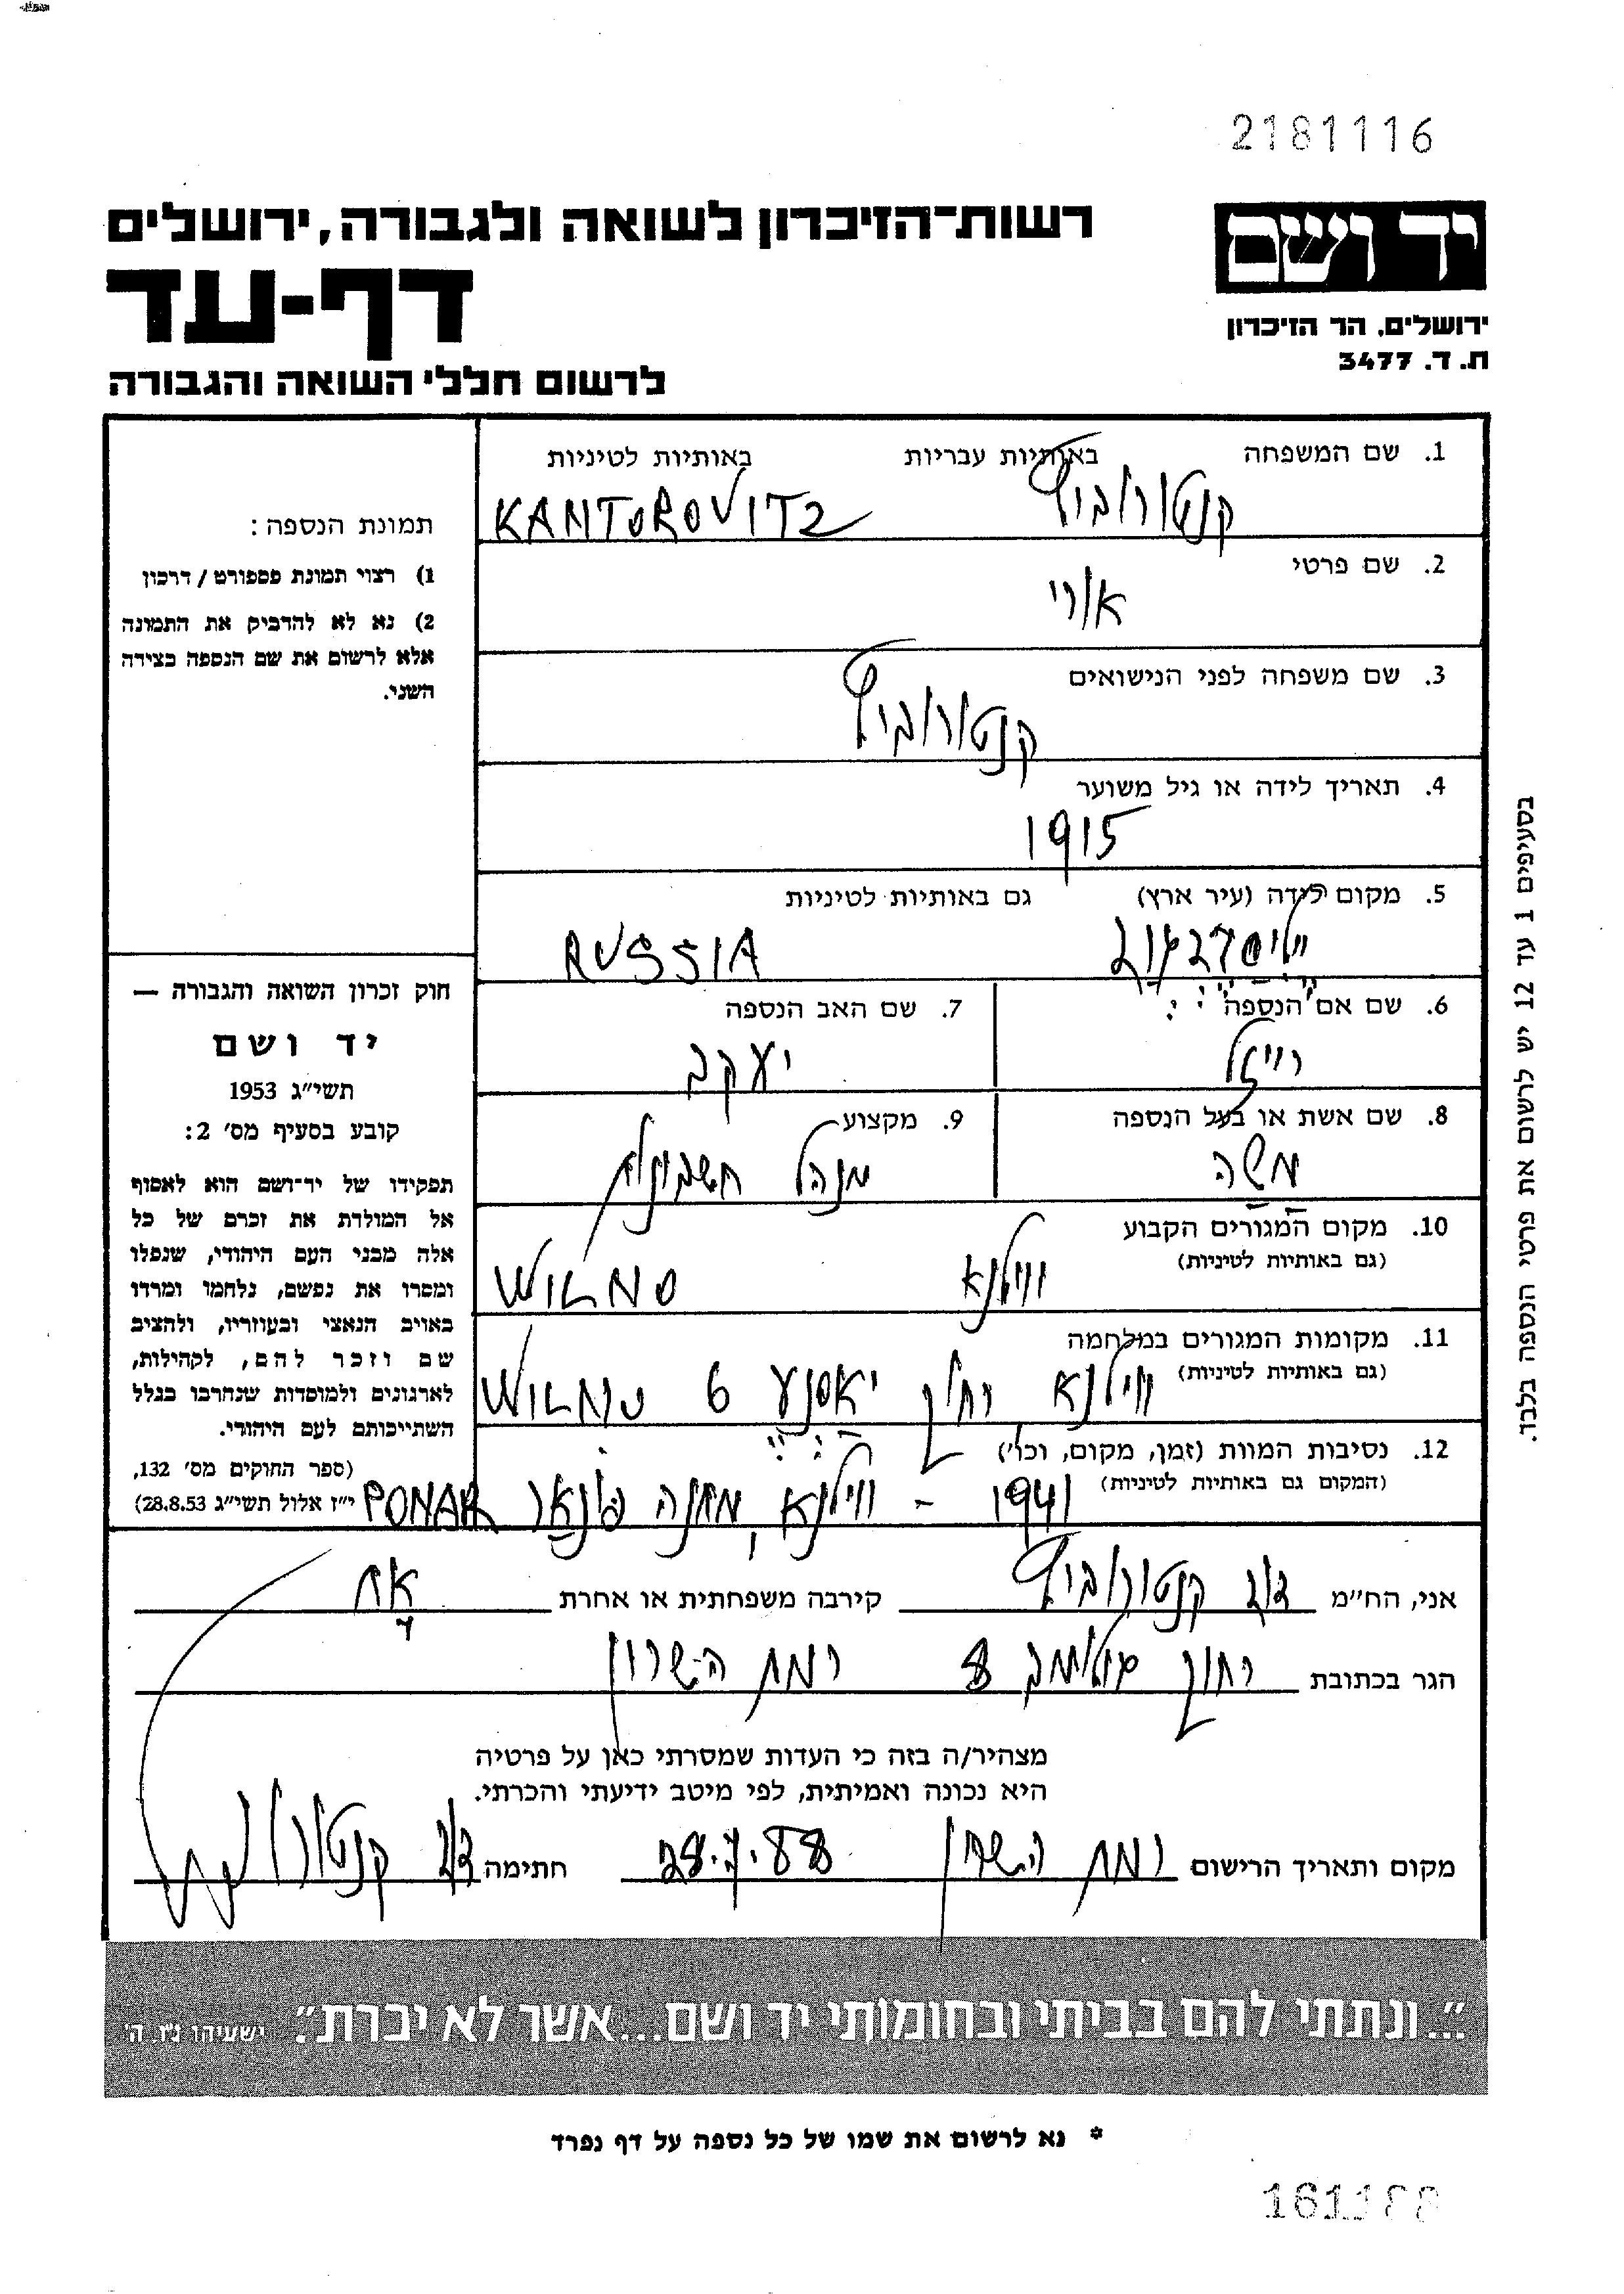 2181116
יד ושם
ירושלים, הר הזיכרון
ת. ד. 3477
רשות־הזיכרון לשואה ולגבורה, ירושלים
דף-עד
לרשום חללי השואה והגבורה
תמונת הנספה:
1) רצוי תמונת פספורט / דרכון
2) נא לא להדביק את התמונה
אלא לרשום את שם הנספה בצידה
השני.
חוק זכרון השואה והגבורה —
יד ושם
תשי״ג 1953
קובע בסעיף מס׳ 2:
תפקידו של יד־ושם הוא לאסוף
אל המולדת את זכרם של כל
אלה מבני העם היהודי, שנפלו
ומסרו את נפשם, נלחמו ומרדו
באויב הנאצי ובעוזריו, ולהציב
שם וזכר להם, לקהילות,
לארגונים ולמוסדות שנחרבו בגלל
השתייכותם לעם היהודי.
(ספר החוקים מס׳ 132,
י״ז אלול תשי״ג 28.8.53)
1. שם המשפחה באותיות עבריות באותיות לטיניות
קנטורוביץ KANTOROVITZ
2. שם פרטי
אורי
3. שם משפחה לפני הנישואים
קנטורוביץ
4. תאריך לידה או גיל משוער
1915
5. מקום לידה (עיר ארץ) גם באותיות לטיניות
RUSSIA
6. שם אם הנספה 7. שם האב הנספה
רייזל יעקב
8. שם אשת או בעל הנספה 9. מקצוע
משה מנהל חשבונות
10. מקום המגורים הקבוע
(גם באותיות לטיניות)
ווילנא WILNO
11. מקומות המגורים במלחמה
(גם באותיות לטיניות)
ווילנא רחוב יאסנע 6 WILNO
12. נסיבות המוות (זמן, מקום, וכו׳)
(המקום גם באותיות לטיניות)
1941 - ווילנא, מחנה פונאר PONAR
אני, הח״מ דוב קנטורוביץ קירבה משפחתית או אחרת אח
הגר בכתובת רחוב 8 רמת השרון
מצהיר/ה בזה כי העדות שמסרתי כאן על פרטיה
היא נכונה ואמיתית, לפי מיטב ידיעתי והכרתי.
מקום ותאריך הרישום רמת השרון 28.7.88 חתימה דוב קנטורוביץ
בסעיפים 1 עד 12 יש לרשום את פרטי הנספה בלבד.
״...ונתתי להם בביתי ובחומותי יד ושם...אשר לא יכרת״. ישעיהו נ״ו ה׳
* נא לרשום את שמו של כל נספה על דף נפרד
161188